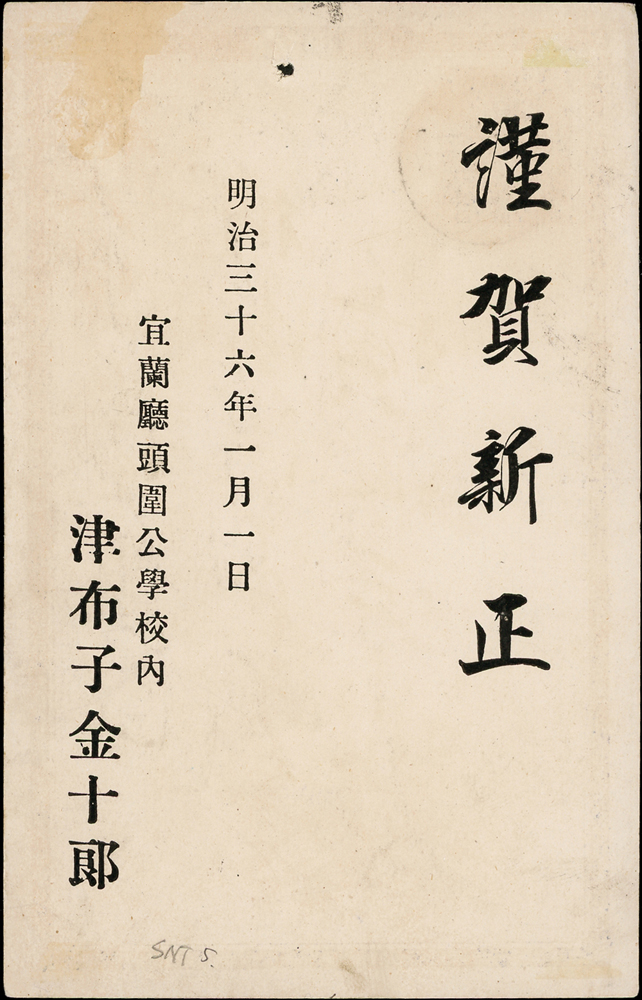 謹賀新正
明治三十六年一月一日
宜蘭廳頭圍公學校內
津布子金十郎
SNT S.